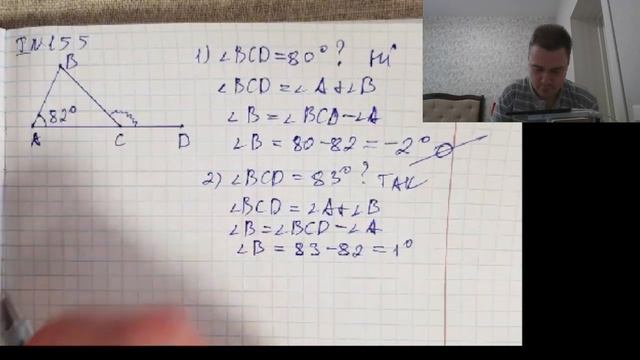 IN155
B
82°
A C D
1) ∠BCD = 80°? Ні
∠BCD = ∠A + ∠B
∠B = ∠BCD - ∠A
∠B = 80 - 82 = -2°
2) ∠BCD = 83°? ТАК
∠BCD = ∠A + ∠B
∠B = ∠BCD - ∠A
∠B = 83 - 82 = 1°